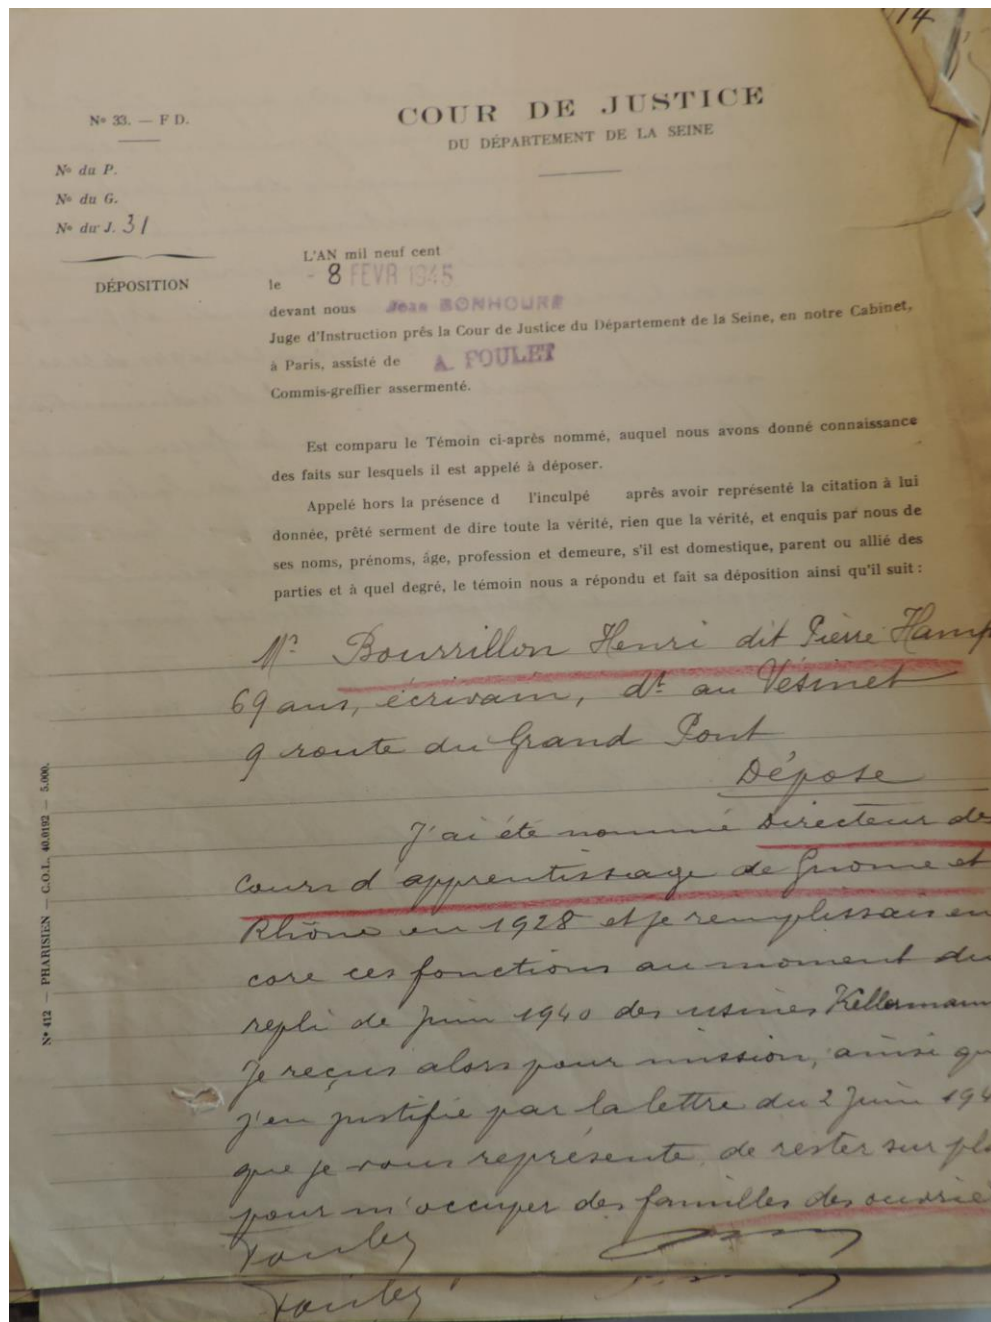 14
COUR DE JUSTICE
DU DÉPARTEMENT DE LA SEINE
Nº 33. — F D.
Nº du P.
Nº du G.
Nº du J. 31
DÉPOSITION
L'AN mil neuf cent
le - 8 FEVR 1945
devant nous Jean BONHOURE
Juge d'Instruction prés la Cour de Justice du Département de la Seine, en notre Cabinet,
à Paris, assisté de A. FOULET
Commis-greffier assermenté.
Est comparu le Témoin ci-après nommé, auquel nous avons donné connaissance
des faits sur lesquels il est appelé à déposer.
Appelé hors la présence d l'inculpé après avoir représenté la citation à lui
donnée, prêté serment de dire toute la vérité, rien que la vérité, et enquis par nous de
ses noms, prénoms, âge, profession et demeure, s'il est domestique, parent ou allié des
parties et à quel degré, le témoin nous a répondu et fait sa déposition ainsi qu'il suit :
Mr Bourrillon Henri dit Pierre Hamp
69 ans, écrivain, dt au Vésinet
9 route du Grand Pont
Dépose
J'ai été nommé Directeur des
cours d'apprentissage de Gnome et
Rhône en 1928 et je remplissais en
core ces fonctions au moment du
repli de juin 1940 des usines Kellermann
Je reçus alors pour mission, ainsi qu
j'en justifie par la lettre du 2 juin 194
que je vous représente, de rester sur pla
pour m'occuper des familles des ouvrie
Nº 412 — PHARISIEN — C.O.L. 40.0192 — 5.000.